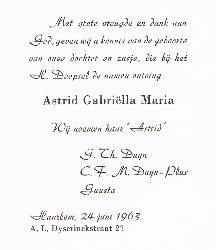 Met grote vreugde en dank aan
God, geven wij u kennis van de geboorte
van onze dochter en zusje, die bij het
H. Doopsel de namen ontving
Astrid Gabriëlla Maria
Wij noemen haar "Astrid"
G. Th. Duyn
C. F. M. Duyn-Plus
Guusta
Haarlem, 24 juni 1963
A. L. Dyserinckstraat 27